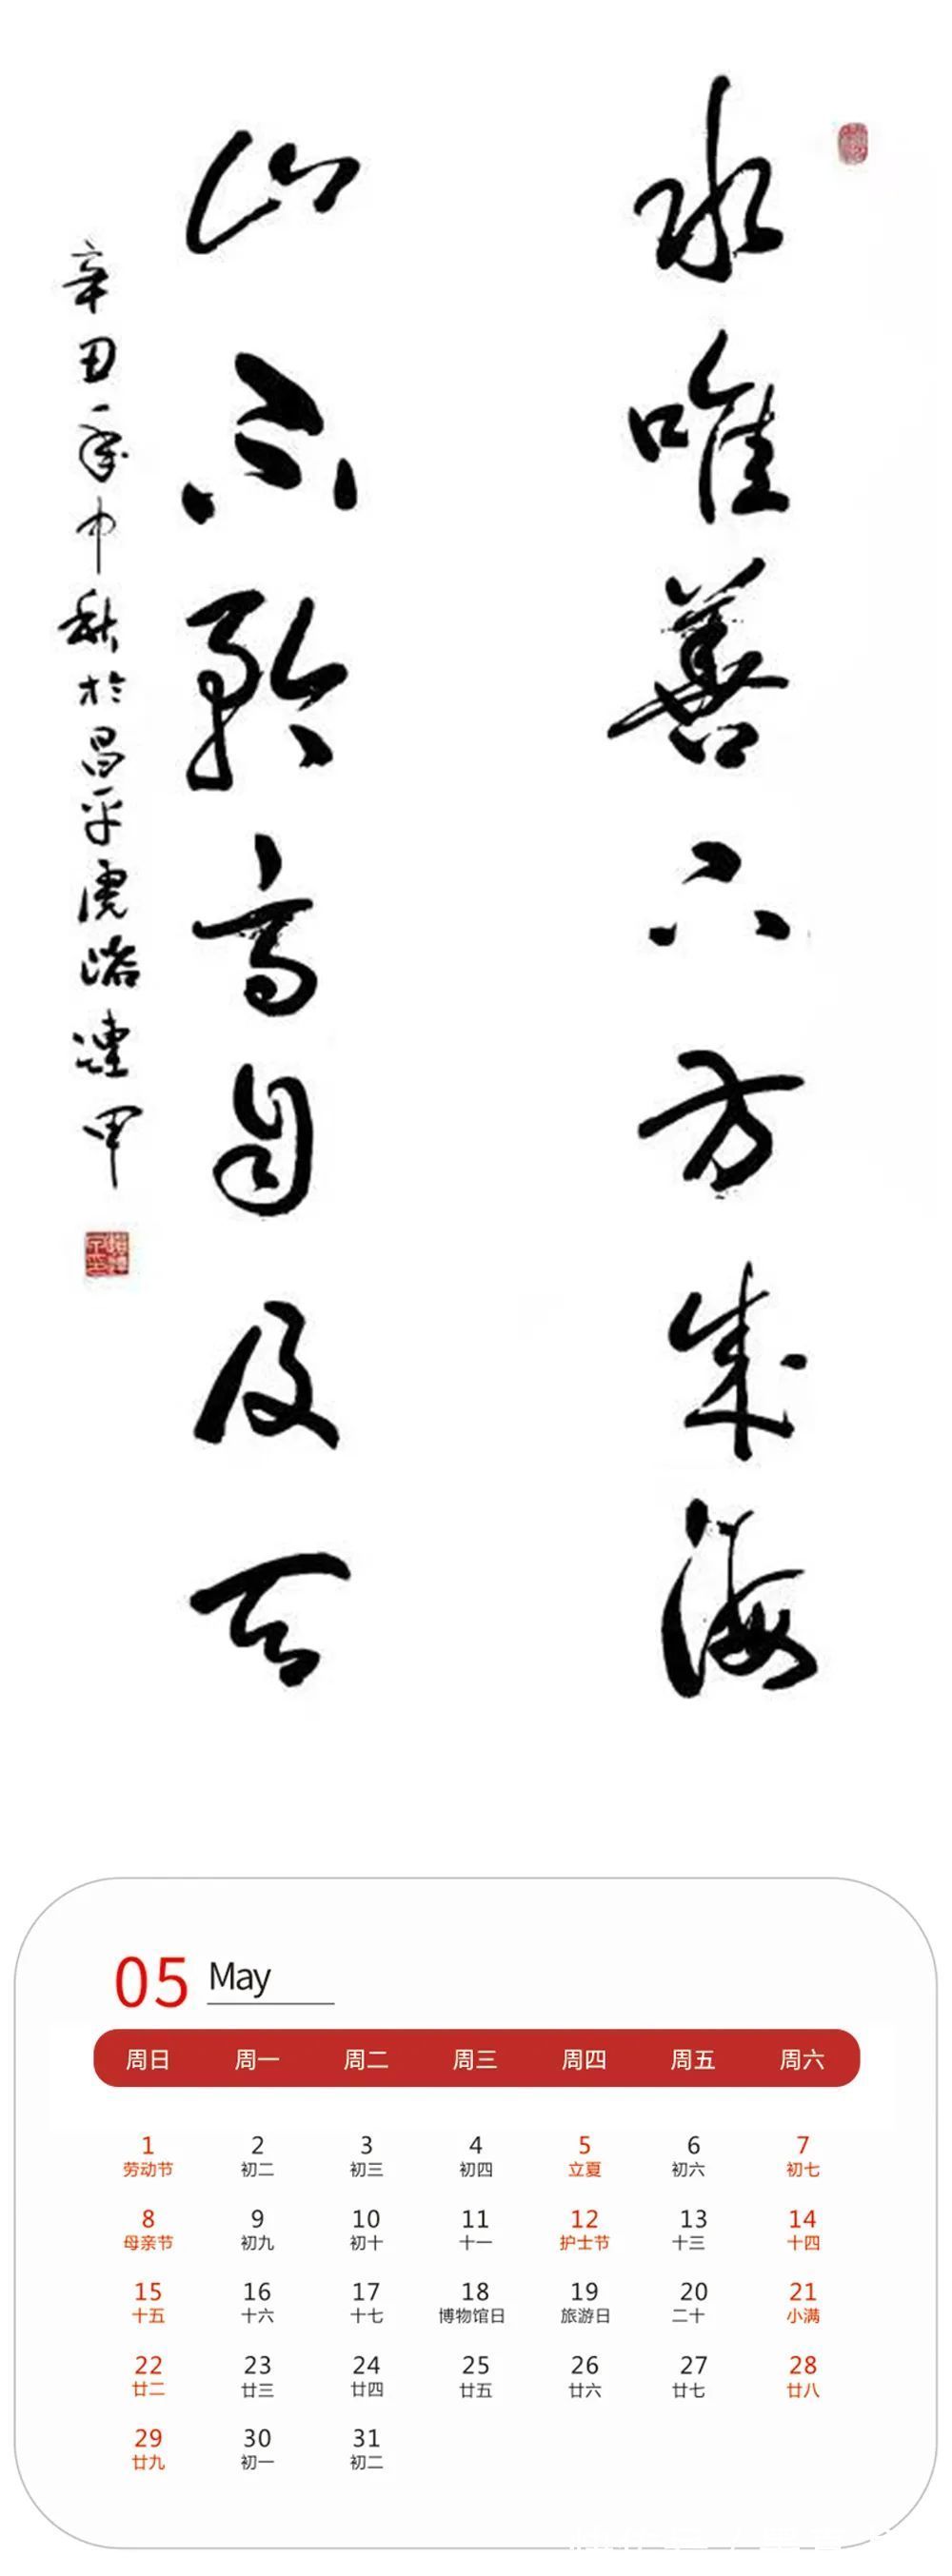 水唯善下方成海
山不矜高自及天
辛丑年中秋於昌平虎峪
05 May
周日 周一 周二 周三 周四 周五 周六
1 2 3 4 5 6 7
劳动节 初二 初三 初四 立夏 初六 初七
8 9 10 11 12 13 14
母亲节 初九 初十 十一 护士节 十三 十四
15 16 17 18 19 20 21
十五 十六 十七 博物馆日 旅游日 二十 小满
22 23 24 25 26 27 28
廿二 廿三 廿四 廿五 廿六 廿七 廿八
29 30 31
廿九 初一 初二